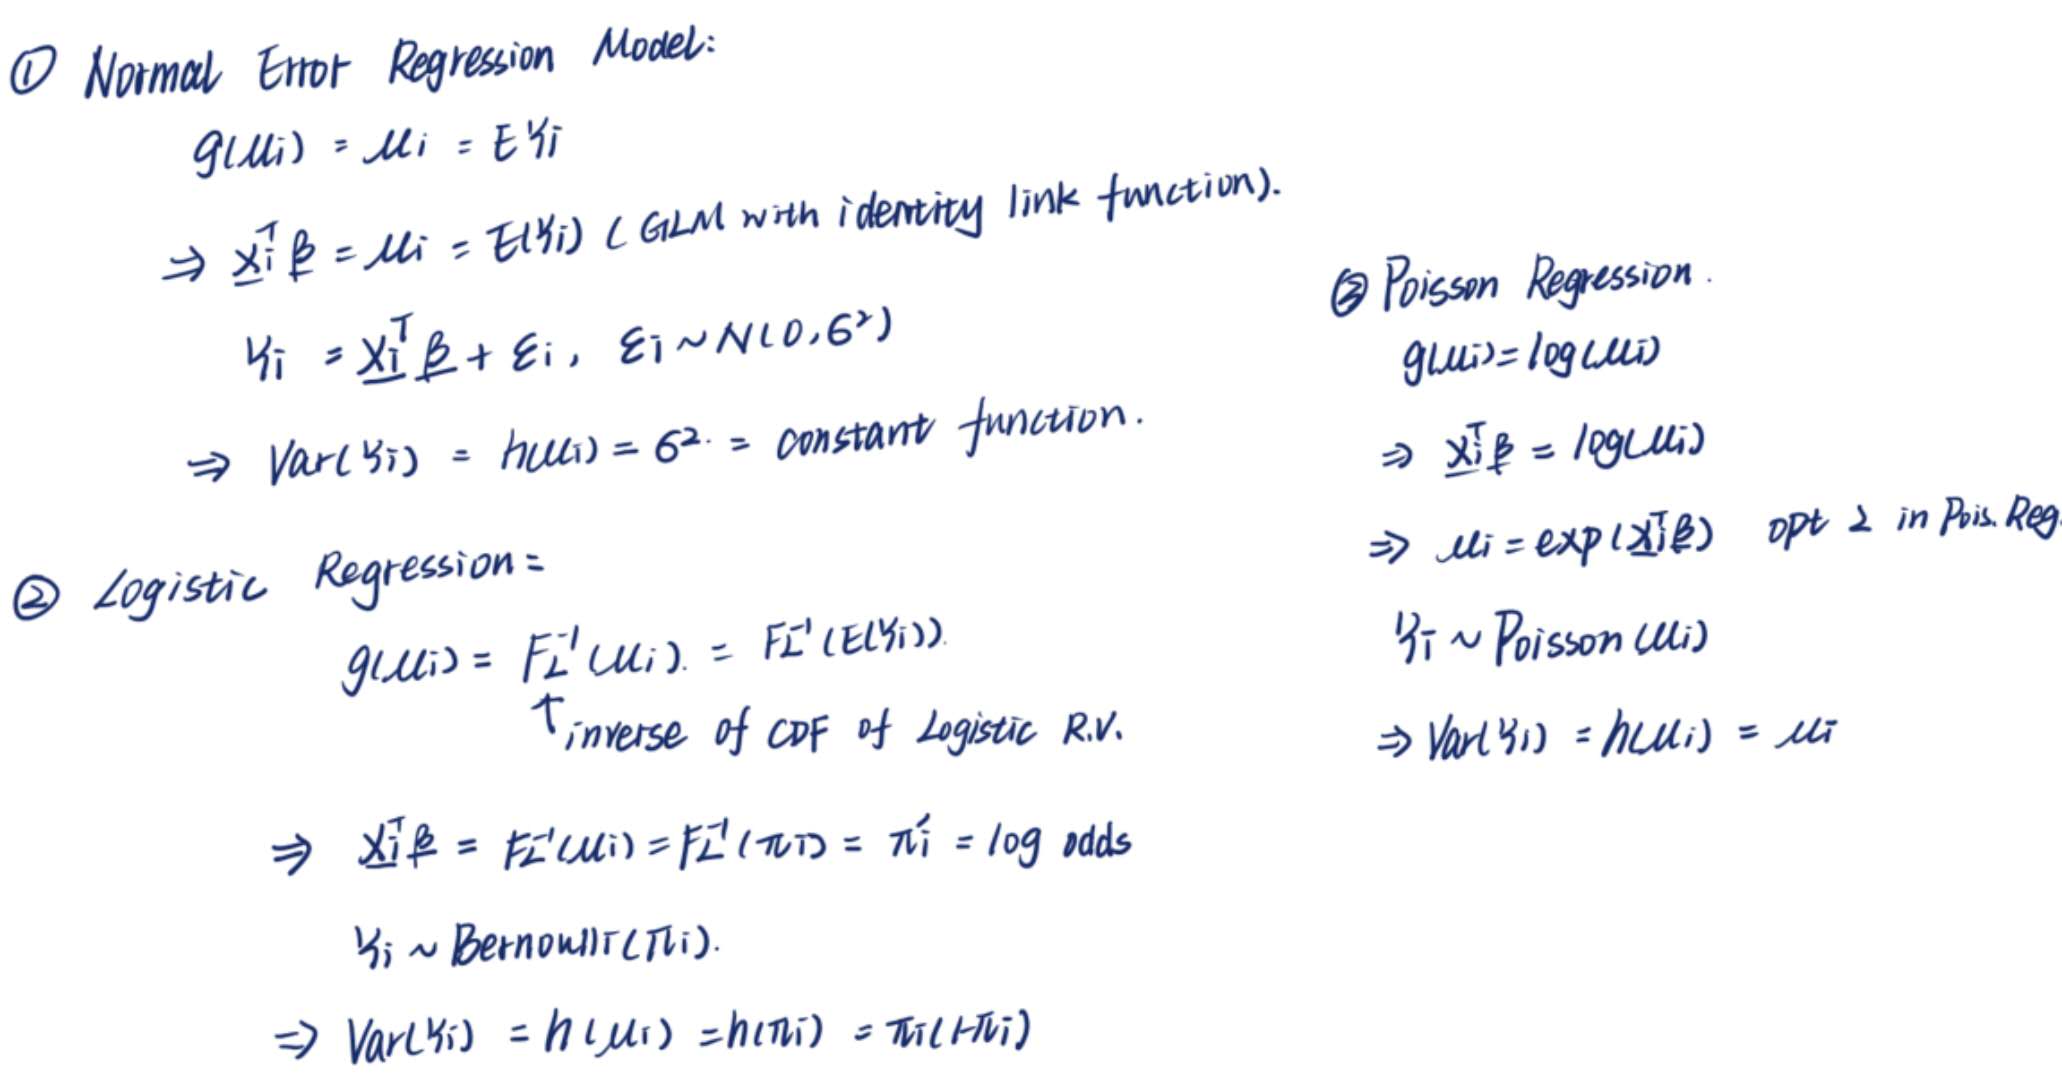 ① Normal Error Regression Model:
g(μi) = μi = E Yi
⇒ Xi^T β = μi = E(Yi) (GLM with identity link function).
Yi = Xi^T β + εi, εi ~ N(0, σ²)
⇒ Var(Yi) = h(μi) = σ² = constant function.
② Logistic Regression =
g(μi) = F_L^-1 (μi). = F_L^-1 (E(Yi)).
↑ inverse of CDF of Logistic R.V.
⇒ Xi^T β = F_L^-1(μi) = F_L^-1(πi) = πi' = log odds
Yi ~ Bernoulli(πi).
⇒ Var(Yi) = h(μi) = h(πi) = πi(1-πi)
③ Poisson Regression.
g(μi) = log(μi)
⇒ Xi^T β = log(μi)
⇒ μi = exp(Xi^T β) opt 2 in Pois. Reg.
Yi ~ Poisson(μi)
⇒ Var(Yi) = h(μi) = μi